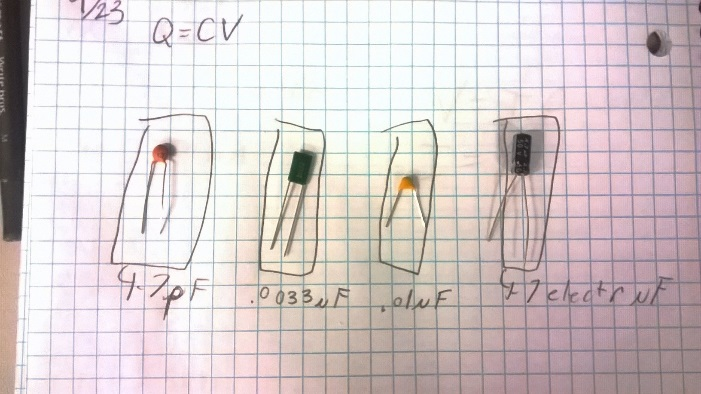 1/23
Q=CV
4.7pF
.0033uF
.01uF
47 electr uF